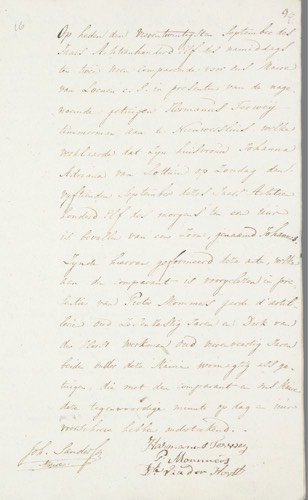 Op heden den September des
Jaars Achttienhonderd Elf des namiddags
ten twee uren compareerde voor ons Maire
van Loenen in presentie van de nage
noemde getuigen Hermanus Verweij
timmerman aan de Nieuwersluis, welke
verklaarde dat zyn huisvrouw Johanna
Adriana van op Zondag den
vyftienden September dezes Jaars Achttien
honderd Elf des morgens ten een ure
is bevallen van een Zoon, genaamd Johannes
Zynde hiervan geformeerd deze acte, welke
aan de comparant is voorgelezen in pre
sentie van Pieter Mommers
oud Jaren en Dirk van
der Horst Werkman oud Jaren
beide onder deze Mairie woonagtig als ge
tuigen, die met den comparant en ons Maire
deze tegenwoordige minute op dag en uure
voorschreven hebben ondertekend.
Hermanus Verweij
P. Mommers
D. van der Horst
Joh. Sanderson
Maire